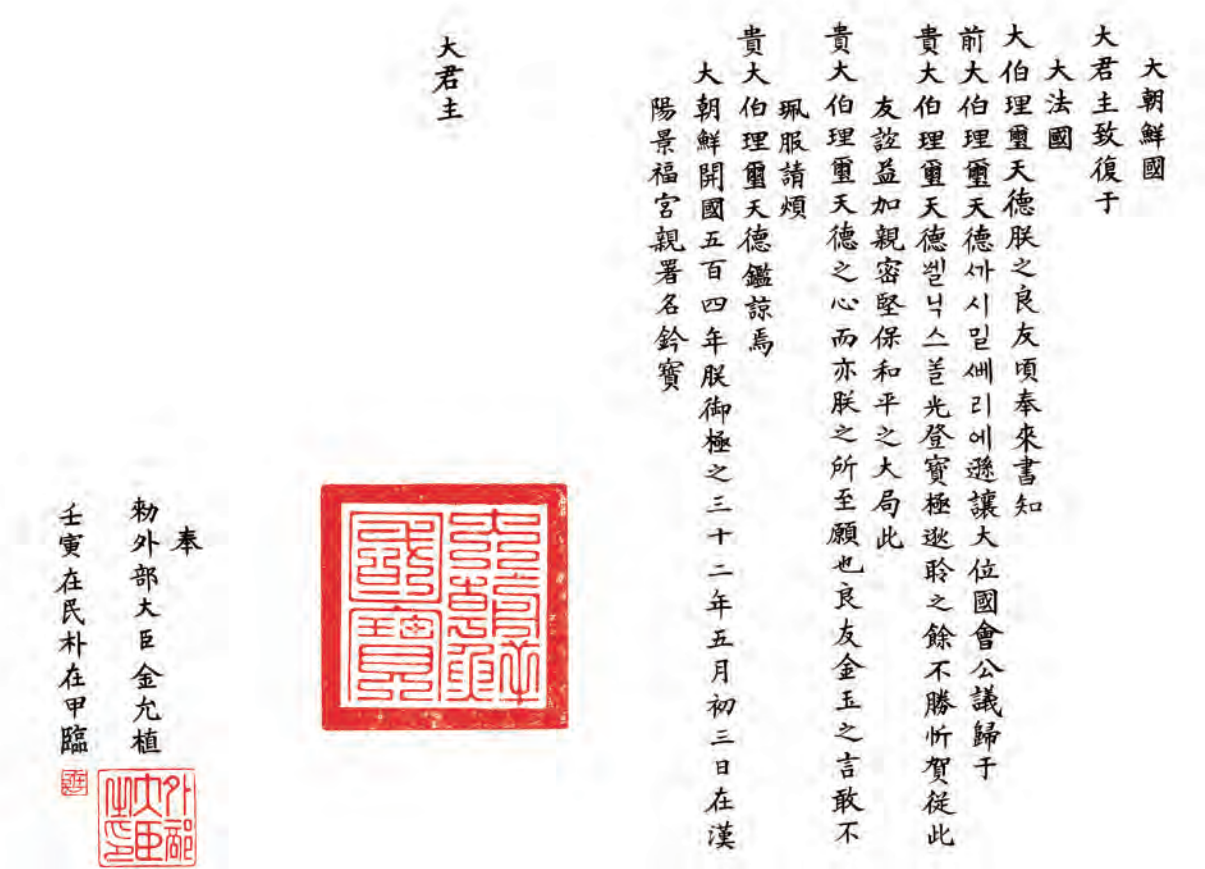 大朝鮮國
大君主致復于
大法國
大伯理璽天德朕之良友頃奉來書知
前大伯理璽天德ᄭᅡ시밀ᄲᅦ리에遜讓大位國會公議歸于
貴大伯理璽天德쎌닉스光登寶極逖聆之餘不勝忻賀從此
友誼益加親密堅保和平之大局此
貴大伯理璽天德之心而亦朕之所至願也良友金玉之言敢不
珮服請煩
貴大伯理璽天德鑑諒焉
大朝鮮開國五百四年朕御極之三十二年五月初三日在漢
陽景福宮親署名鈐寶
大君主
大朝鮮
國寶
奉
勅外部大臣金允植
外部
大臣
之印
壬寅在民朴在甲臨